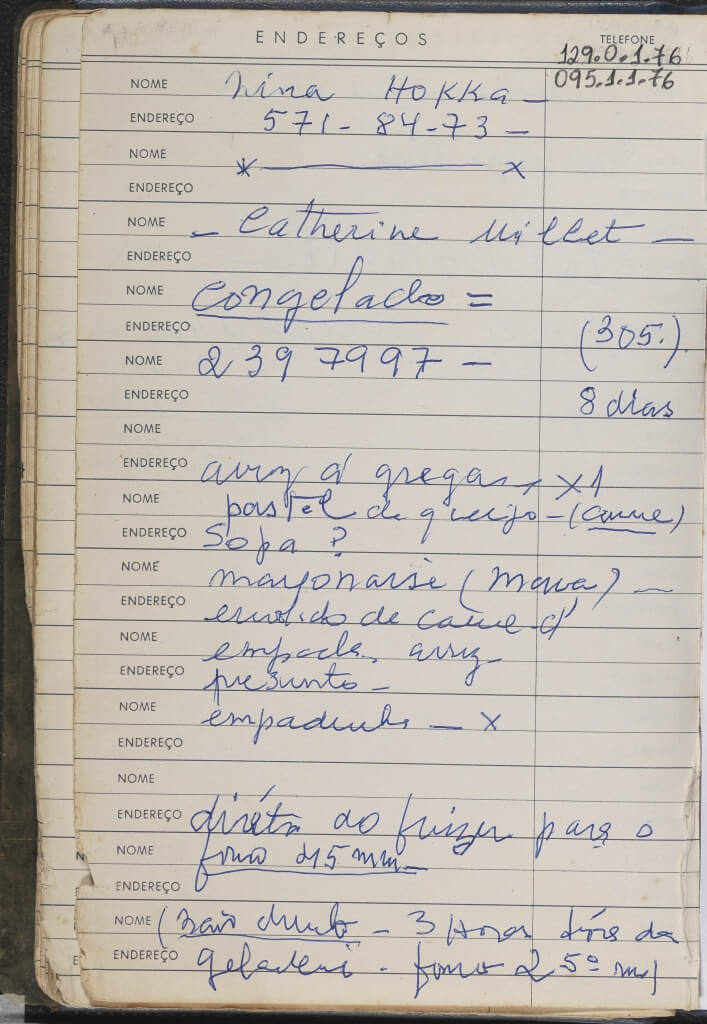 ENDEREÇOS
TELEFONE
129.0.1.76
095.1.1.76
NOME Nina HOKKA -
ENDEREÇO 571-84-73 -
NOME x ——— x
ENDEREÇO
NOME - Catherine Millet -
ENDEREÇO
NOME congelado =
ENDEREÇO (305.)
NOME 2397997 -
ENDEREÇO 8 dias
NOME
ENDEREÇO arroz à gregas, x1
NOME pastel de queijo - (carne)
ENDEREÇO Sopa ?
NOME mayonaise ( ) -
ENDEREÇO de carne
NOME empada, arroz
ENDEREÇO presunto -
NOME empadinha - x
ENDEREÇO
NOME
ENDEREÇO direto do frizer para o
NOME forno 45 mm -
ENDEREÇO
NOME ( - 3 Horas fora da
ENDEREÇO geladeira - forno